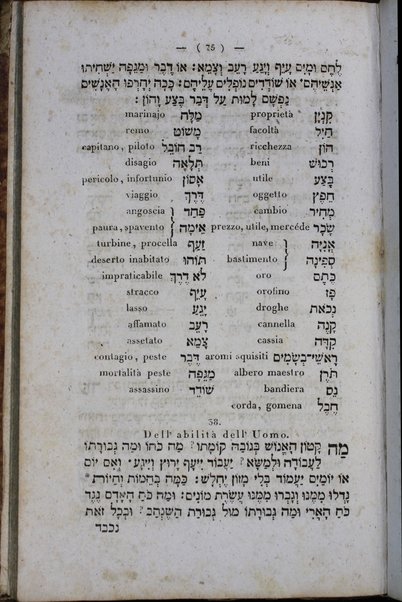 — ( 75 ) —
לֶחֶם וּמַיִם עָיֵף וְיָגֵעַ רָעֵב וְצָמֵא: אוֹ דֶבֶר וּמַגֵּפָה יַשְׁחִיתוּ
אַנְשֵׁיהֶם׃ אוֹ שׁוֹדְדִים נוֹפְלִים עֲלֵיהֶם: כָּכָה יְחָרְפוּ הָאֲנָשִׁים
נַפְשָׁם לָמוּת עַל דְּבַר בֶּצַע וָהוֹן:
קִנְיָן proprietà מַלָּח marinajo
חַיִל facoltà מָשׁוֹט remo
הוֹן ricchezza רַב חוֹבֵל capitano, piloto
רְכוּשׁ beni תְּלָאָה disagio
בֶּצַע utile אָסוֹן pericolo, infortunio
חֵפֶץ oggetto דֶּרֶךְ viaggio
מְחִיר cambio פַּחַד angoscia
שָׂכָר prezzo, utile, mercéde אֵימָה paura, spavento
אֳנִיָּה nave זַעַף turbine, procella
סְפִינָה bastimento תּוֹהוּ deserto inabitato
כֶּתֶם oro לֹא דֶרֶךְ impraticabile
פָּז orofino עָיֵף stracco
נְכֹאת droghe יָגֵעַ lasso
קָנֶה cannella רָעֵב affamato
קִדָּה cassia צָמֵא assetato
רָאשֵׁי־בְשָׂמִים aromi squisiti דֶּבֶר contagio, peste
תֹּרֶן albero maestro מַגֵּפָה mortalità peste
נֵס bandiera שׁוֹדֵד assassino
חֶבֶל corda, gomena
38.
Dell' abilità dell' Uomo.
מַה קָּטוֹן הָאֱנוֹשׁ בְּגוֹבַהּ קוֹמָתוֹ? מַה כֹּחוֹ וּמַה גְּבוּרָתוֹ
לַעֲבוֹדָה וּלְמַשָּׂא? יַעֲבוֹד יִיעַף יָרוּץ וְיִיגַע׃ וְאִם יוֹם
אוֹ יוֹמַיִם יַעֲמוֹד בְּלִי מָזוֹן יֶחֱלָשׁ: כַּמָּה בְּהֵמוֹת וְחַיּוֹת
גָּדְלוּ מִמֶּנּוּ וְגָבְרוּ מִמֶּנּוּ עֲשֶׂרֶת מוֹנִים: וּמַה כֹּחַ הָאָדָם נֶגֶד
כֹּחַ הָאֲרִי וּמַה גְּבוּרָתוֹ מוּל גְּבוּרַת הַשֶּׁנְהַב? וּבְכָל זֹאת
נכבד